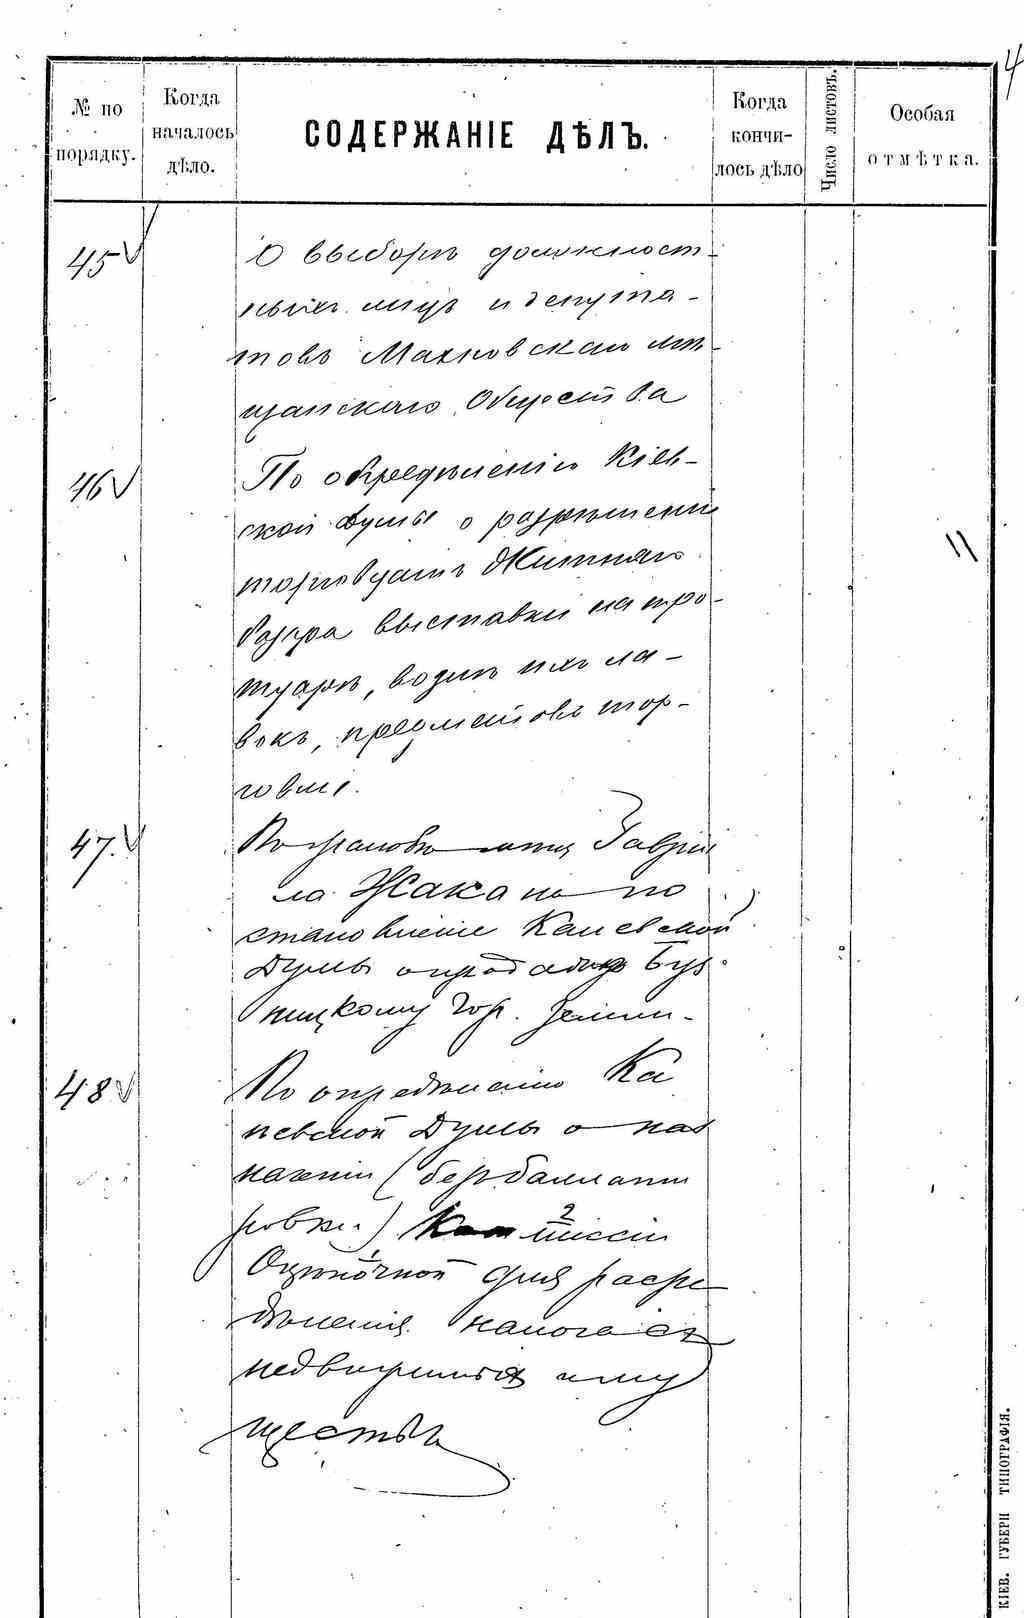 4
№ по порядку.
Когда началось дѣло.
СОДЕРЖАНІЕ ДѢЛЪ.
Когда кончилось дѣло
Число листовъ.
Особая отмѣтка.
45
О выборѣ должност-
ныхъ лицъ и депута-
товъ Махновскаго мѣ-
щанскаго Общества
46
По опредѣленію Кіев-
ской Думы о разрѣшеніи
торговцамъ Житняго
базара выставки на тро-
туарѣ, возлѣ ихъ ла-
вокъ, предметовъ тор-
говли.
47.
По жалобѣ Гаврі
ла Жака на по
становленіе Каневской
Думы
ницкому Гор. земли.
48
По опредѣленію Ка
невской Думы о наз
наченіи (безъ баллоти
ровки) 2 миссіи
Оцѣночной для распре
дѣленія налога съ
недвижимыхъ иму
ществъ
КІЕВ. ГУБЕРН ТИПОГРАФІЯ.